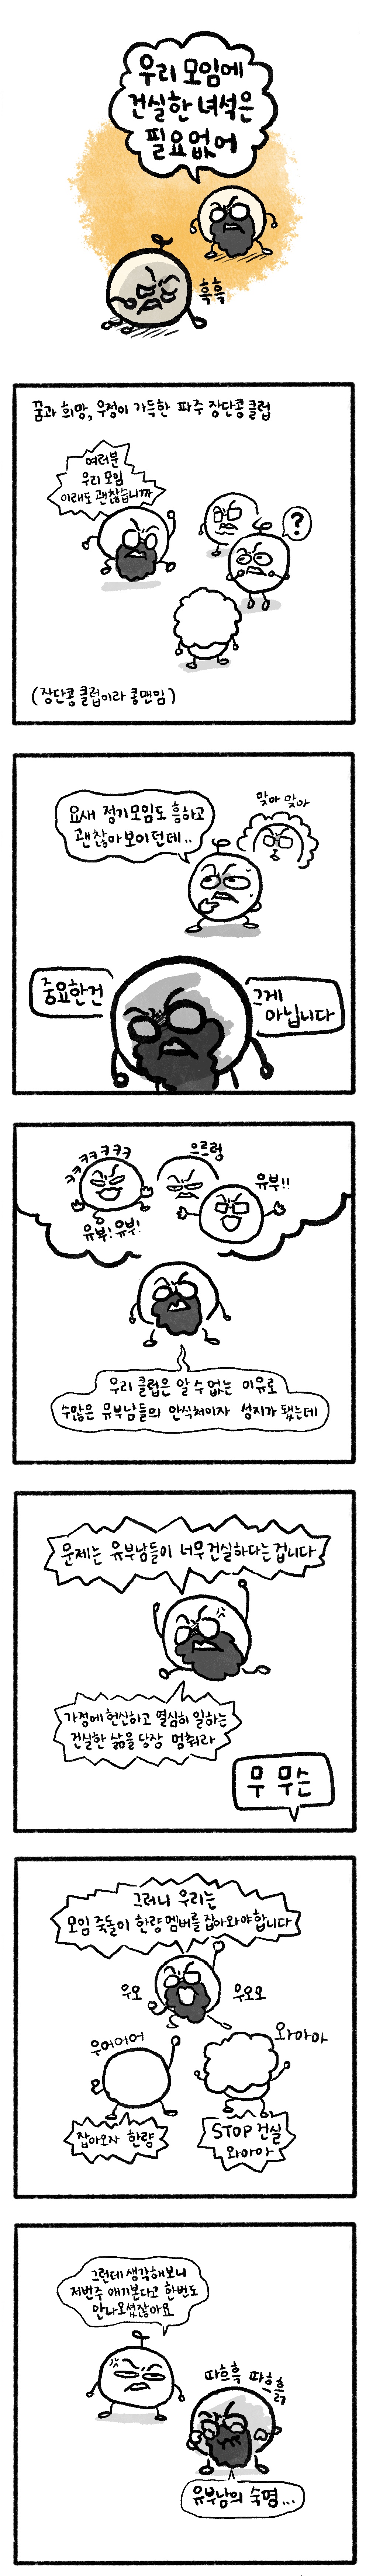 우리 모임에
건실한 녀석은
필요없어
흑흑
꿈과 희망, 우정이 가득한 파주 장단콩 클럽
여러분
우리 모임
이래도 괜찮습니까
?
(장단콩 클럽이라 콩맨임)
요새 정기모임도 흥하고
괜찮아보이던데..
맞아 맞아
중요한건
그게
아닙니다
ㅋㅋㅋㅋㅋㅋ
으르렁
유부!!
유부! 유부!
우리 클럽은 알 수 없는 이유로
수많은 유부남들의 안식처이자 성지가 됐는데
문제는 유부남들이 너무 건실하다는겁니다
가정에 헌신하고 열심히 일하는
건실한 삶을 당장 멈춰라
무 무슨
그러니 우리는
모임 죽돌이 한량멤버를 잡아와야합니다
우오
우오오
우어어어
와아아
잡아오자 한량
STOP 건실
와아아
그런데 생각해보니
저번주 애기본다고 한번도
안나오셨잖아요
따흐흑 따흐흙
유부남의 숙명...